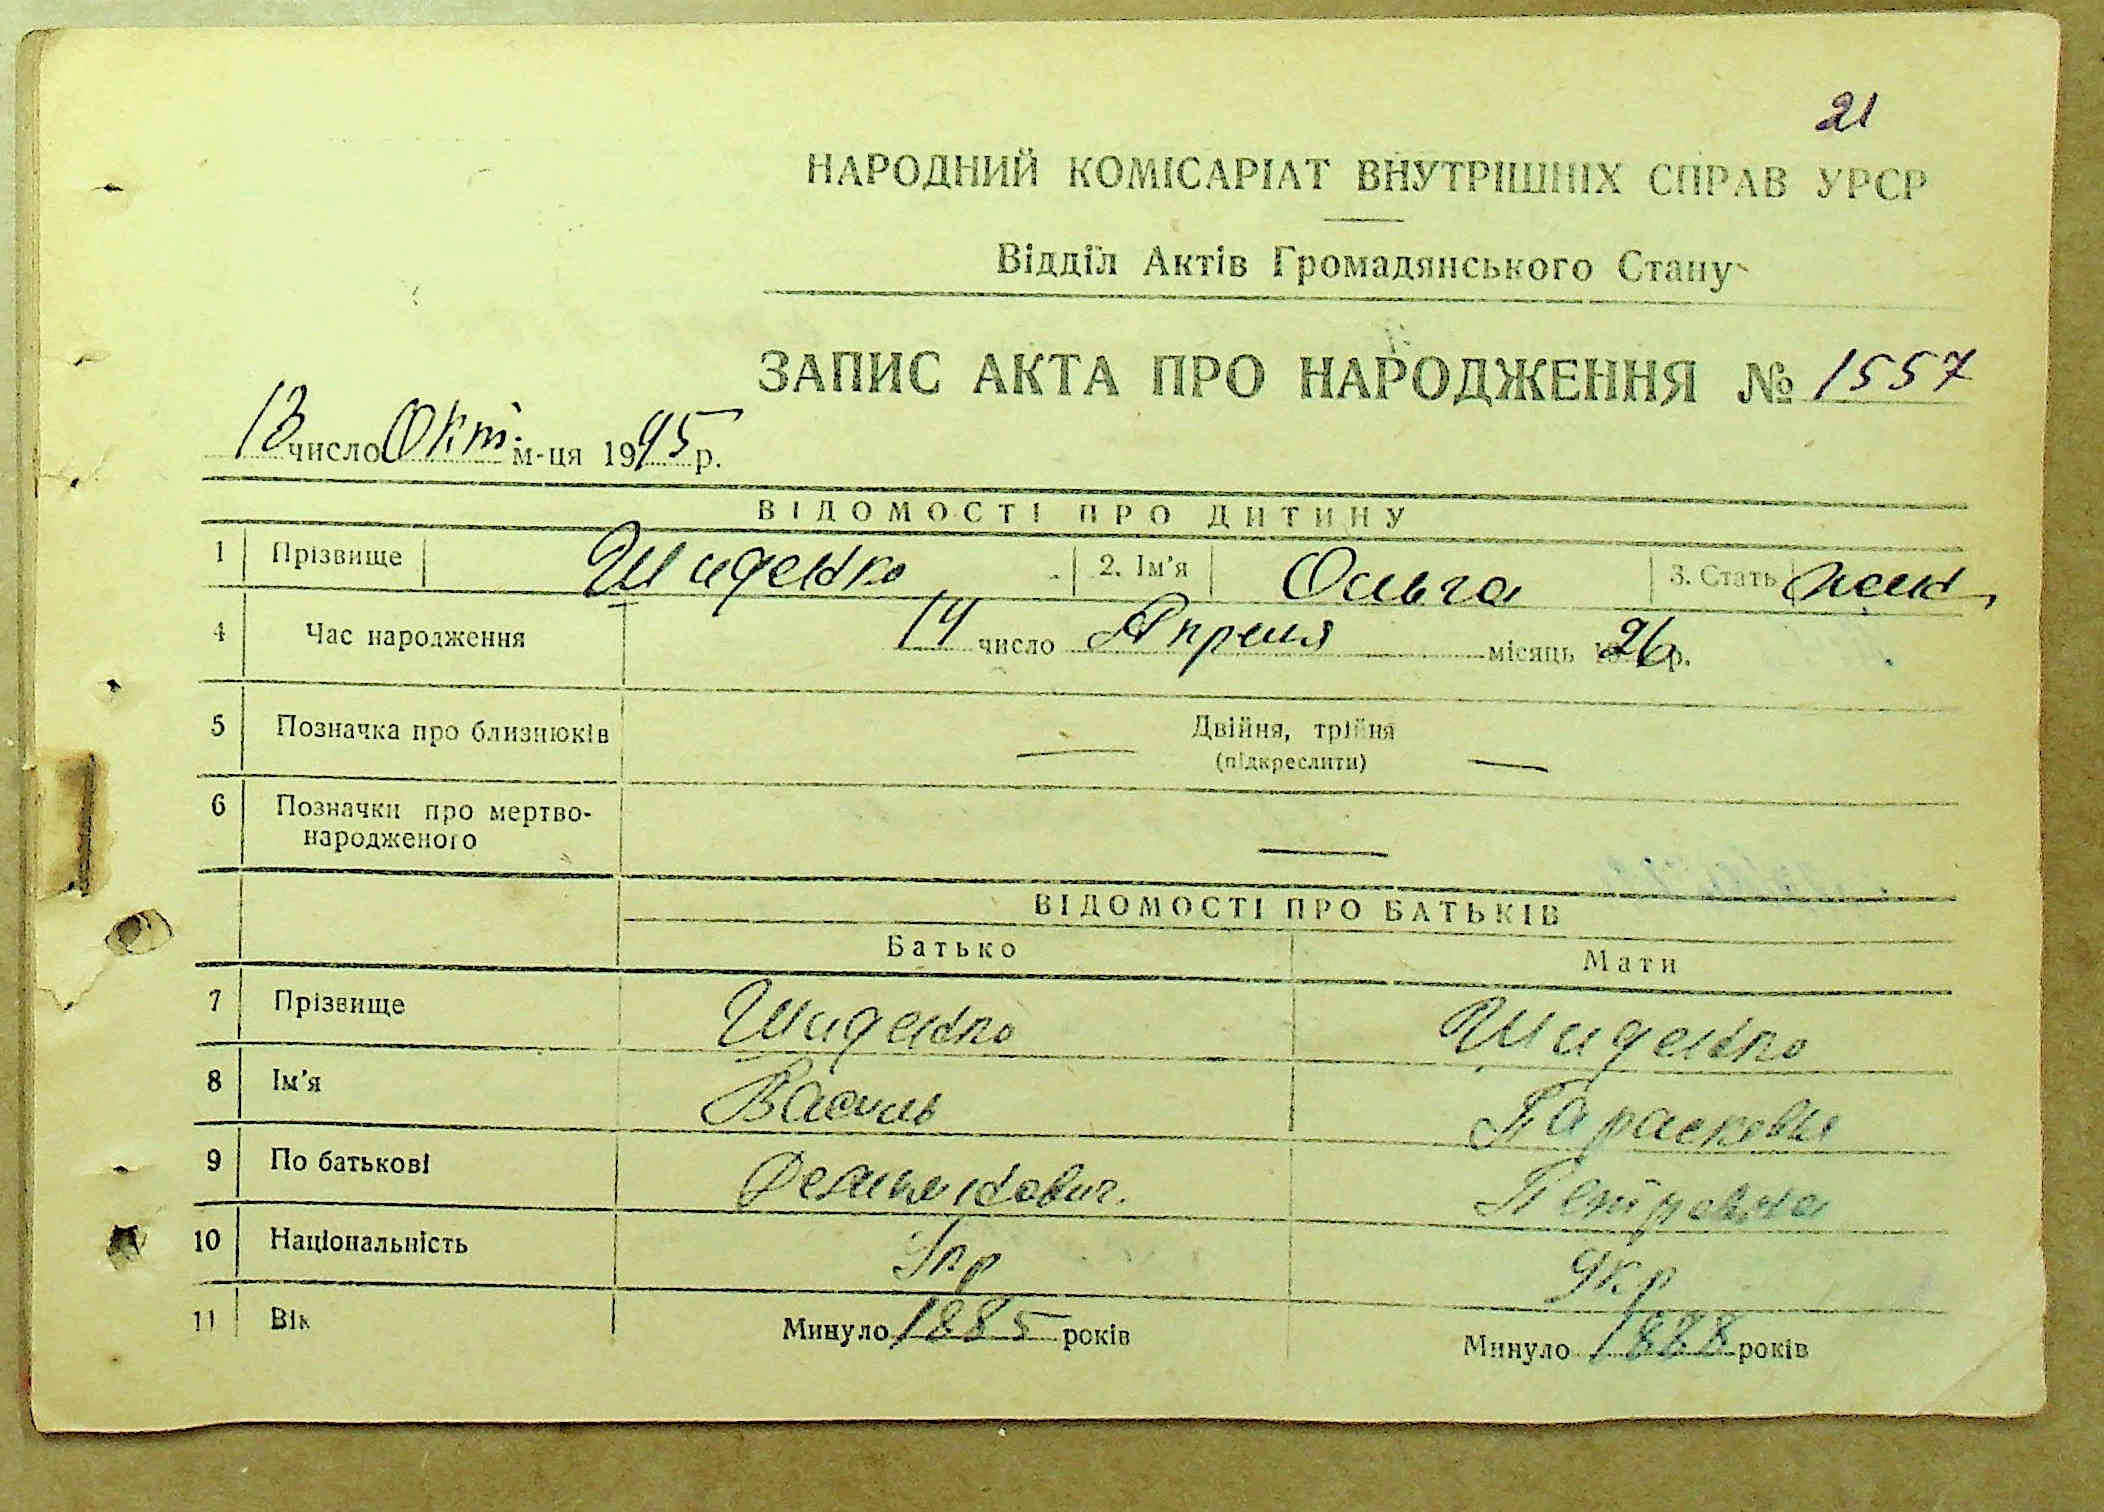 21
НАРОДНИЙ КОМІСАРІАТ ВНУТРІШНІХ СПРАВ УРСР
Відділ Актів Громадянського Стану
ЗАПИС АКТА ПРО НАРОДЖЕННЯ № 1557
13 число Окт. м-ця 1945 р.
ВІДОМОСТІ ПРО ДИТИНУ
1 Прізвище Шиденко 2. Ім'я Ольга 3. Стать жен
4 Час народження 14 число Апреля місяць 1926 р.
5 Позначка про близнюків Двійня, трійня
(підкреслити)
6 Позначки про мертво-
народженого
ВІДОМОСТІ ПРО БАТЬКІВ
Батько Мати
7 Прізвище Шиденко Шиденко
8 Ім'я Василь Парасковья
9 По батькові Демьянович. Петровна
10 Національність Укр Укр
11 Вік Минуло 1885 років Минуло 1888 років